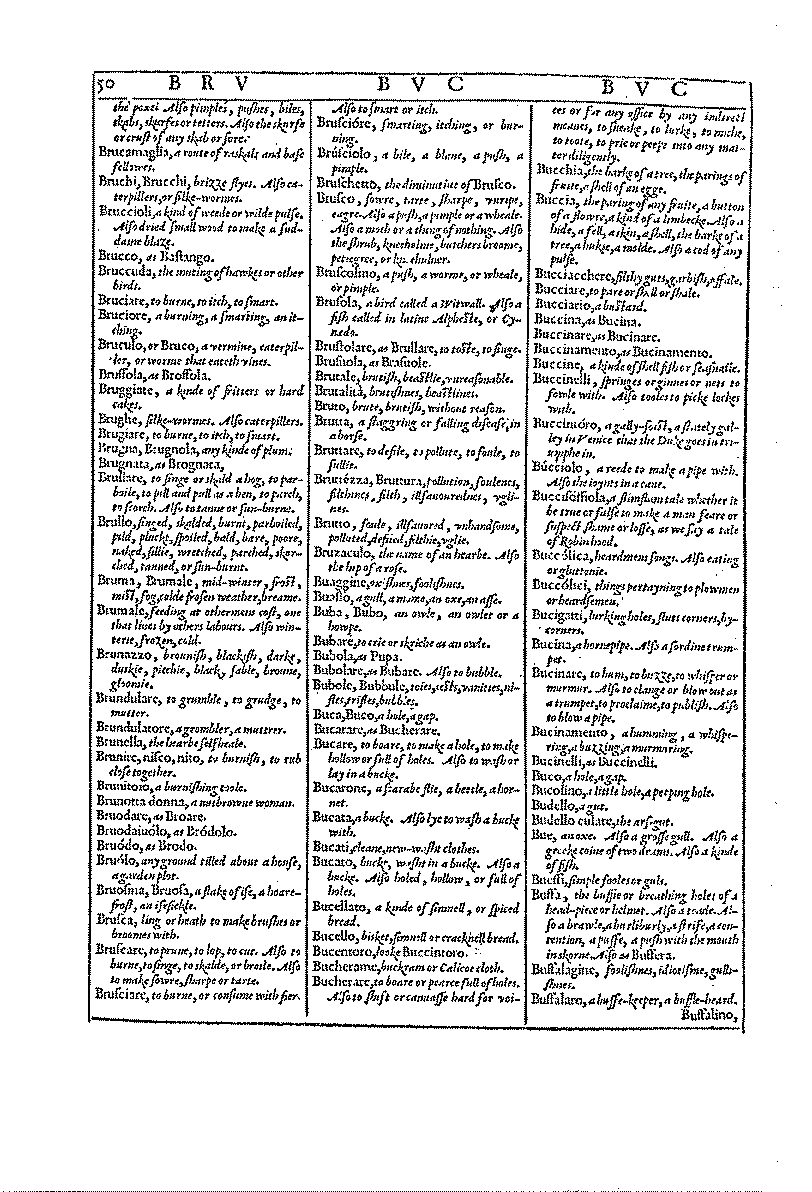 50 B R V B V C B V C
the poxe. Also pimples, pushes, biles,
skabs, skurfes or tetters. Also the skurfe
or crust of any skab or sore.
Brucamaglia, a route of raskals and base
fellowes.
Bruchi, Brucchi, brizze flyes. Also ca-
terpillers, or silke-wormes.
Bruccioli, a kind of weede or wilde pulse.
Also dried small wood to make a sud-
daine blaze.
Brucco, as Bastango.
Bruccuda, the muting of hawkes or other
birds.
Bruciare, to burne, to itch, to smart.
Bruciore, a burning, a smarting, an it-
ching.
Bruculo, or Bruco, a vermine, caterpil-
ler, or worme that eateth vines.
Bruffola, as Broffola.
Bruggiate, a kinde of fritters or hard
cakes.
Brughe, silke-wormes. Also caterpillers.
Brugiare, to burne, to itch, to smart.
Brugna, Brugnola, any kinde of plum.
Brugnata, as Brognata.
Brullare, to singe or skald a hog, to par-
boile, to pill and pull as a hen, to parch,
to scorch. Also to tanne or sun-burne.
Brullo, singed, skalded, burnt, parboiled,
pild, pluckt, spoiled, bald, bare, poore,
naked, sillie, wretched, parched, skor-
ched, tanned, or sun-burnt.
Bruma, Brumale, mid-winter, frost,
mist, fog, colde frosen weather, breame.
Brumale, feeding at othermens cost, one
that lives by others labours. Also win-
terie, frozen, cold.
Brunazzo, brounish, blackish, darke,
duskie, pitchie, black, sable, broune,
gloomie.
Brundulare, to grumble, to grudge, to
mutter.
Brundulatore, a grombler, a mutterer.
Brunella, the hearbe selfheale.
Brunire, nisco, nito, to burnish, to rub
close together.
Brunitoio, a burnishing toole.
Brunotta donna, a nutbrowne woman.
Bruodare, as Broare.
Bruodaiuólo, as Bródolo.
Bruódo, as Brodo.
Bruólo, any ground tilled about a house,
a garden plot.
Bruosma, Bruosa, a flake of ise, a hoare-
frost, an isesickle.
Brusca, ling or heath to make brushes or
broomes with.
Bruscare, to prune, to lop, to cut. Also to
burne, to singe, to skalde, or broile. Also
to make sowre, sharpe or tarte.
Brusciare, to burne, or consume with fier.
Also to smart or itch.
Bruscióre, smarting, itching, or bur-
ning.
Brúsciolo, a bile, a blane, a push, a
pimple.
Bruschetto, the diminutive of Brusco.
Brusco, sowre, tarte, sharpe, vnripe,
eagre. Also a push, a pimple or a wheale.
Also a moth or a thing of nothing. Also
the shrub, kneeholme, butchers broome,
petegree, or
Bruscolino, a push, a worme, or wheale,
or pimple.
Brusola, a bird called a Witwall. Also a
fish called in latine Alpheste, or Cy-
nedo.
Brustolare, as Brullare, to toste, to singe.
Brusuola, as Brasuole.
Brutale, brutish, beastlie, vnreasonable.
Brutalità, brutishnes, beastlines.
Bruto, brute, brutish, without reason.
Brutta, a staggring or falling disease, in
a horse.
Bruttare, to defile, to pollute, to foule, to
sullie.
Bruttézza, Bruttura, pollution, foulenes,
filthines, filth, illfauourednes, vgli-
nes.
Brutto, foule, illfauored, vnhandsome,
polluted, defiled, filthie, vglie.
Bruzaculo, the name of an hearbe. Also
the hip of a rose.
Buaggine, oxishnes, foolishnes.
Buasso, a gull, a mome, an oxe, an asse.
Buba, Bubo, an owle, an owler or a
howpe.
Bubare, to crie or skriche as an owle.
Bubola, as Pupa.
Bubolare, as Bubare. Also to bubble.
Bubole, Bubbule, toies, iests, vanities, ni-
fles, trifles, bubbles.
Buca, Buco, a hole, a gap.
Bucarare, as Bucherare.
Bucare, to boare, to make a hole, to make
hollow or full of holes. Also to wash or
lay in a bucke.
Bucarone, a scarabe flie, a beetle, a hor-
net.
Bucata, a bucke. Also lye to wash a bucke
with.
Bucati, cleane, new-washt clothes.
Bucato, buckt, washt in a bucke. Also a
bucke. Also holed, hollow, or full of
holes.
Bucellato, a kinde of simnell, or spiced
bread.
Bucello, bisket, simnell or cracknell bread.
Bucentoro, looke Buccintoro.
Bucherame, buckram or Calicoe cloth.
Bucherare, to boare or pearce full of holes.
Also to shift or canuasse hard for voi-
ces or for any office by any indirect
meanes, to sneake, to lurke, to miche,
to toote, to prie or peepe into any mat-
ter diligently.
Bucchia, the barke of a tree, the parings of
fruite, a shell of an egge.
Buccia, the paring of any fruite, a button
of a flowre, a kind of a limbecke. Also a
hide, a fell, a skin, a shell, the barke of a
tree, a huske, a molde. Also a cod of any
pulse.
Bucciacchere, filthy guts, garbish, offale.
Bucciare, to pare or shill or shale.
Bucciario, a bustard.
Buccina, as Bucina.
Buccinare, as Bucinare.
Buccinamento, as Bucinamento.
Buccine, a kinde of shell fish or seasnaile.
Buccinelli, springes or ginnes or nets to
fowle with. Also tooles to picke lockes
with.
Buccintóro, a gally-foist, a stately gal-
ley in Venice that the Duke goes in tri-
umphe in.
Búcciolo, a reede to make a pipe with.
Also the ioynts in a cane.
Buccifóttiola, a flimflam tale whether it
be true or false to make a man feare or
suspect shame or losse, as we say a tale
of Robin hood.
Buccólica, heardmens songs. Also eating
or gluttonie.
Buccólici, things pertayning to plowmen
or heardsemen.
Bucigatti, lurking holes, sluts corners, by-
corners.
Bucina, a hornepipe. Also a sordine trum-
pet.
Bucinare, to hum, to buzze, to whisper or
murmur. Also to clange or blow out as
a trumpet, to proclaime, to publish. Also
to blow a pipe.
Bucinamento, a humming, a whispe-
ring, a buzzing, a murmuring.
Bucinelli, as Buccinelli.
Buco, a hole, a gap.
Bucolino, a little hole, a peeping hole.
Budello, a gut.
Budello culare, the arsgut.
Bue, an oxe. Also a grosse gull. Also a
greeke coine of two drams. Also a kinde
of fish.
Buessi, simple fooles or guls.
Buffa, the buffie or breathing holes of a
head-piece or helmet. Also a toade. Al-
so a brawle, a hurliburly, a strife, a con-
tention, a puffe, a push with the mouth
in skorne. Also as Buffera.
Buffalagine, foolishnes, idiotisme, gulli-
shnes.
Buffalaro, a buffe-keeper, a buffle-heard.
Buffalino,